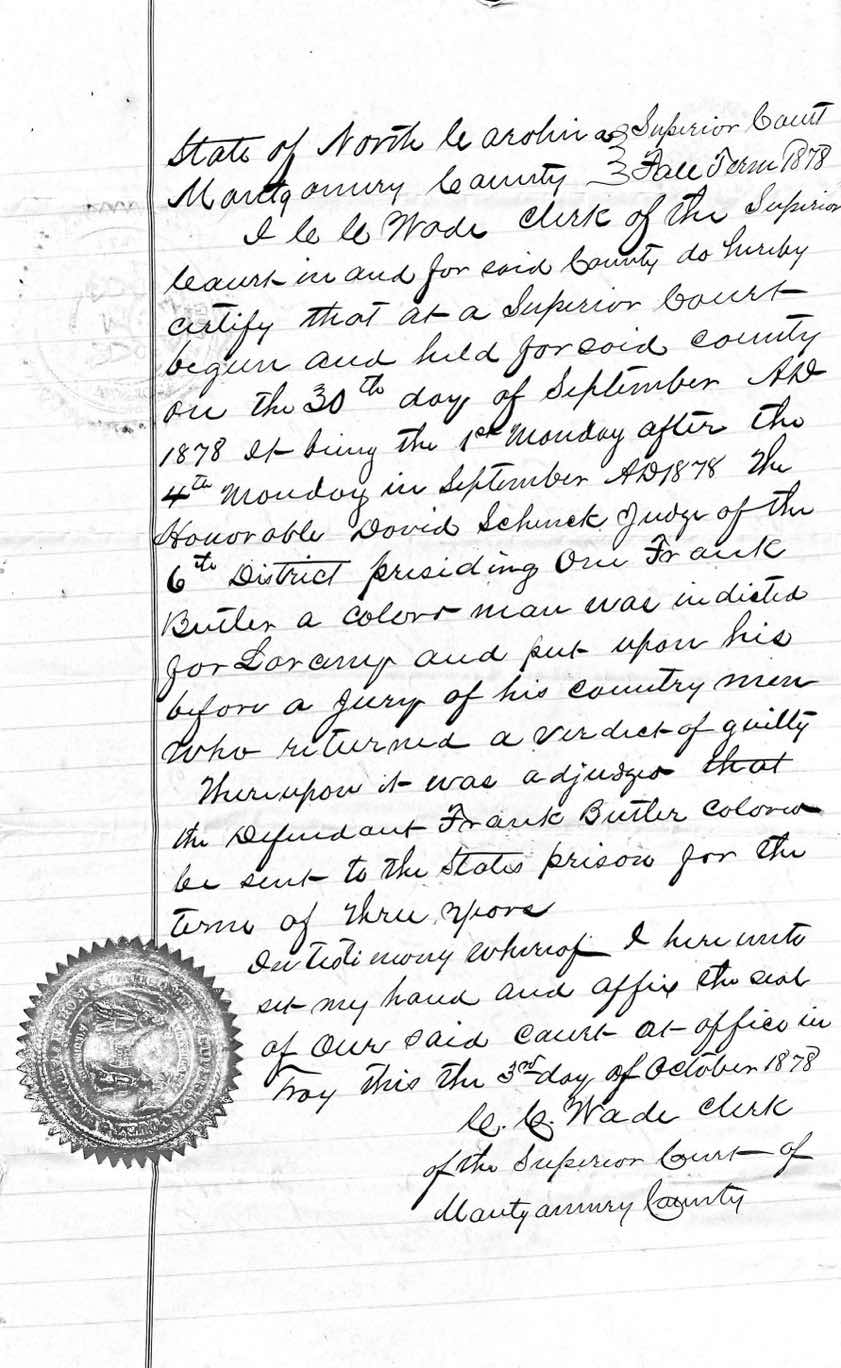 State of North Carolina } Superior Court
Montgomery County } Fall Term 1878
I C C Wade Clerk of the Superior
Court in and for said County do hereby
certify that at a Superior Court
begun and held for said county
on the 30th day of September AD
1878 It being the 1st Monday after the
4th Monday in September AD 1878 The
Honorable David Schenck Judge of the
6th District presiding One Frank
Butler a colord man was indicted
for Larceny and put upon his
before a Jury of his country men
who returned a verdict of guilty
Thereupon it was adjudged that
the Defendant Frank Butler Colored
be sent to the States prison for the
term of three years
In testimony whereof I here unto
set my hand and affix the seal
of our said court at office in
Troy this the 3rd day of October 1878
C. C. Wade Clerk
of the Superior Court of
Montgomery County